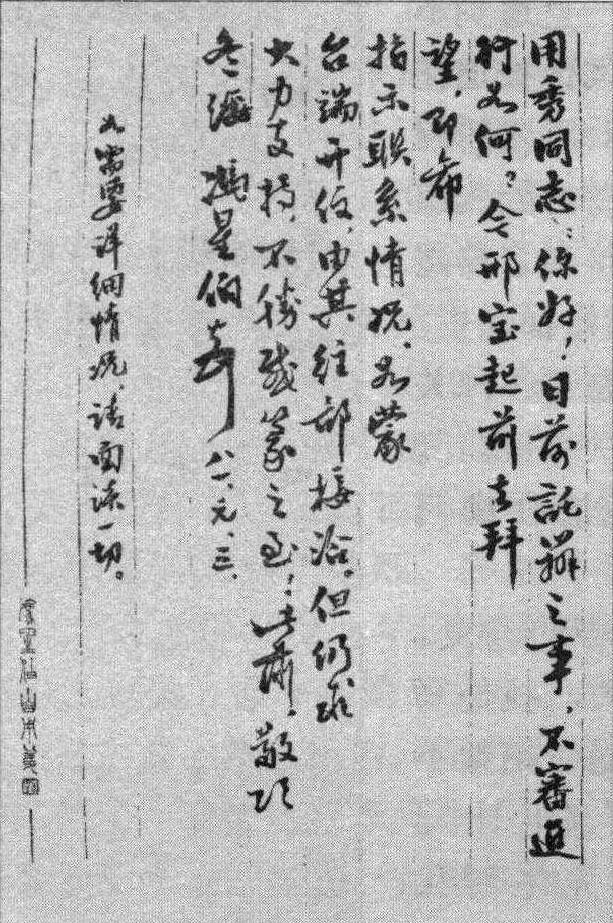 用秀同志：你好！日前託辦之事，不審進
行如何？今邢宝起前去拜
望，即希
指示联系情况，如蒙
台端开仮，由其往部接洽。但仍求
大力支持，不勝感篆之至！此肅，敬頌
冬綏 馮星伯 八一、元、三、
如需要详细情况，请面谈一切。